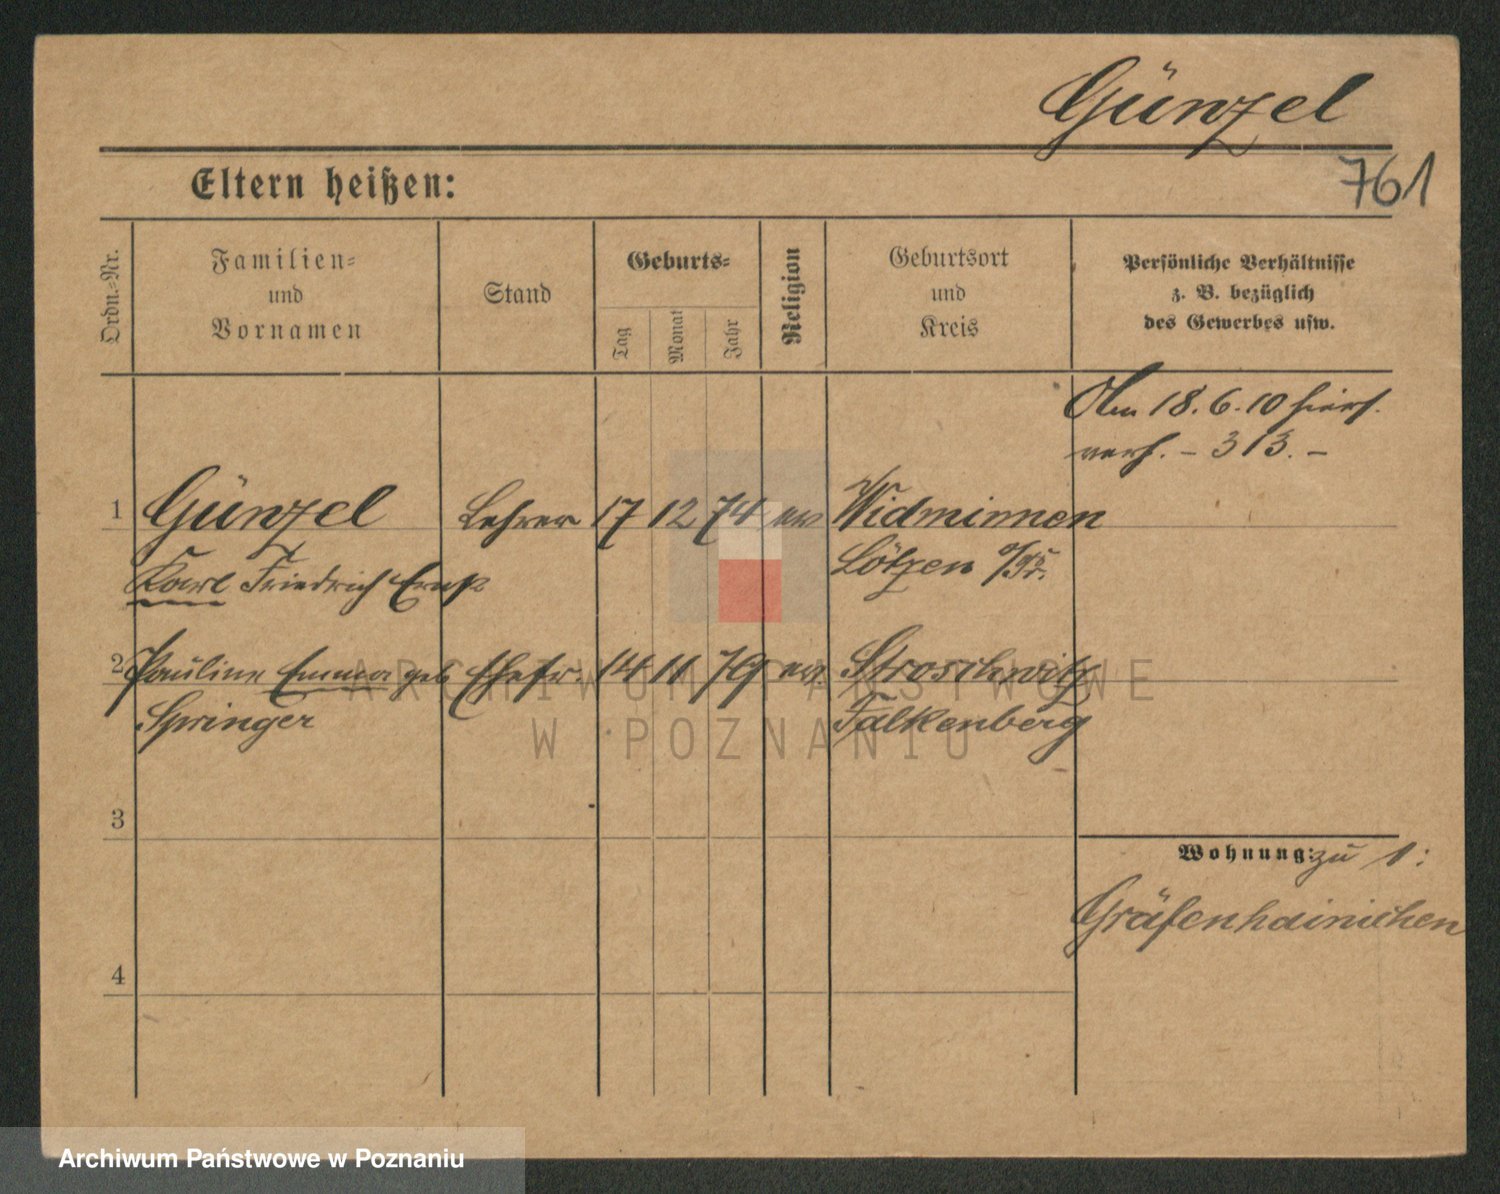 Günzel
761
Eltern heißen:
Ordn.-Nr.
Familien-
und
Vornamen
Stand
Geburts-
Tag
Monat
Jahr
Religion
Geburtsort
und
Kreis
Persönliche Verhältnisse
z. B. bezüglich
des Gewerbes usw.
Am 18.6.10 hiers.
verh. - 313. -
1 Günzel Lehrer 17 12 74 ev Widminnen
Karl Friedrich Ernst Lötzen O/Pr.
2 Pauline Emma geb Ehefr. 14 11 79 ev. Stroschwitz
Springer Falkenberg
3
Wohnung: zu 1:
Gräfenhainichen
4
ARCHIWUM PAŃSTWOWE
W POZNANIU
Archiwum Państwowe w Poznaniu